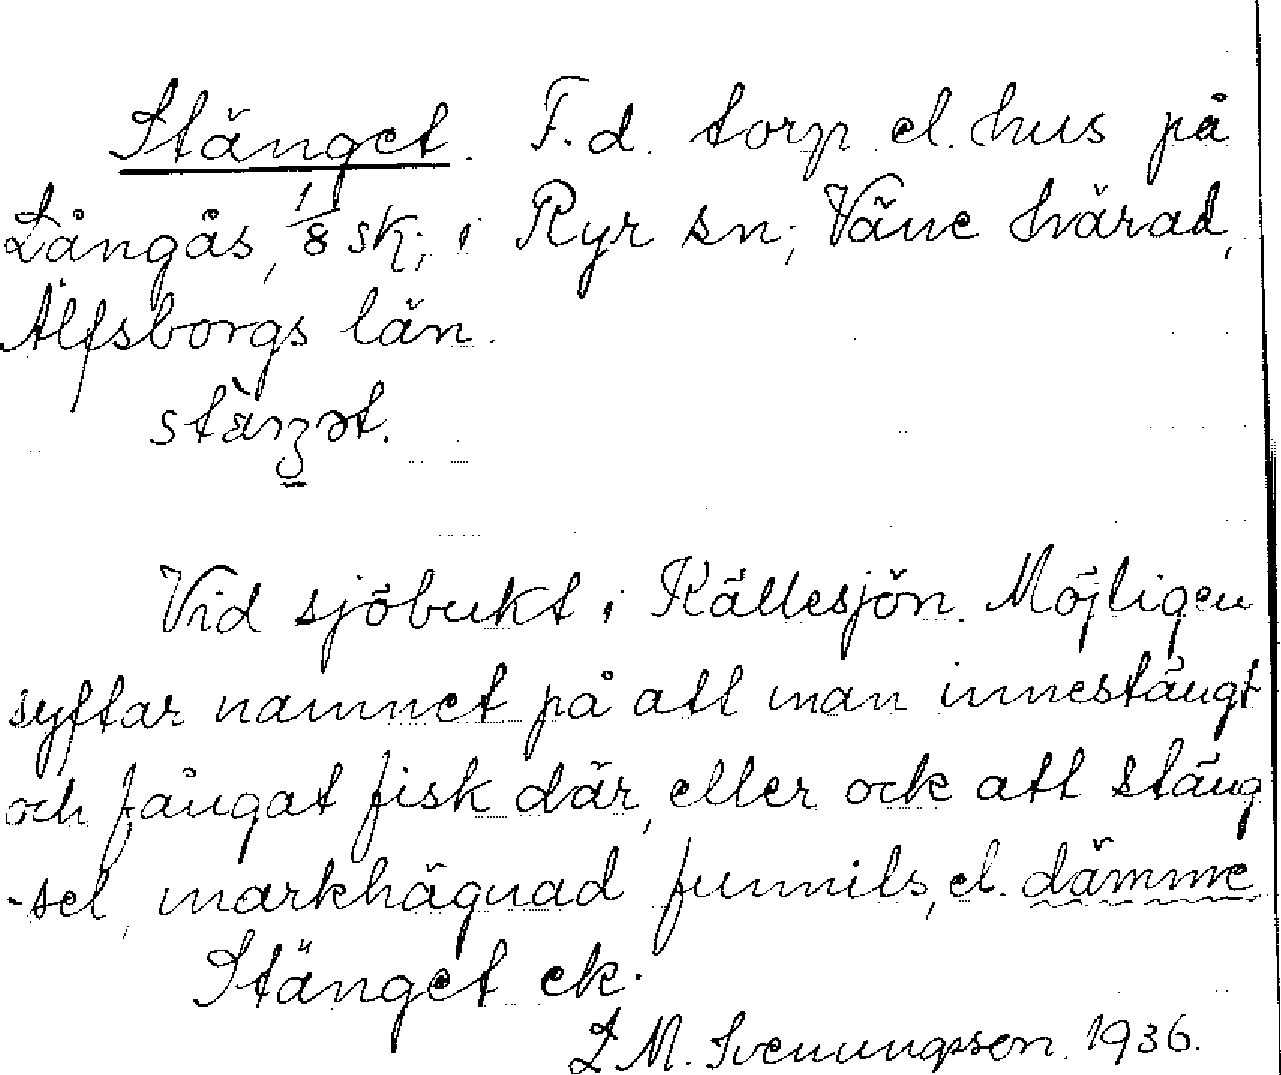 Stänget. F.d. torp el. hus på
Långås, 1/8 sk; i Ryr sn; Väne härad,
Älfsborgs län.

Vid sjöbukt i Källesjön. Möjligen
syftar namnet på att man innestängt
och fångat fisk där, eller ock att stäng
-sel, markhägnad funnits, el. dämme
Stänget ek.
L M. Svenungsson. 1936.